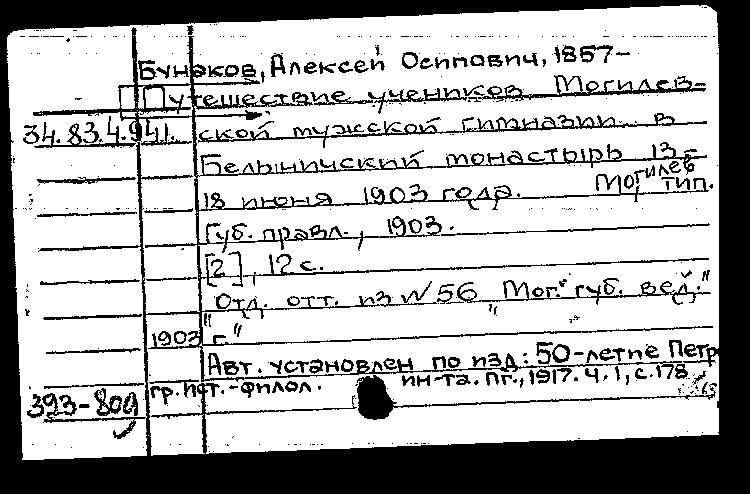 Бунаков, Алексей Осипович, 1857-
Путешествие учеников Могилев-
34.83.4.941. ской мужской гимназии в
Белыничский монастырь 13-
18 июня 1903 года. Могилев тип.
Губ. правл., 1903.
[2], 12 с.
"Отд. отт. из № 56 "Мог." губ. вед."
1903 г."
Авт. установлен по изд: 50-летие Петр
гр. Ист.-филол. ин-та. Пг., 1917. ч. 1, с. 178
393-80д